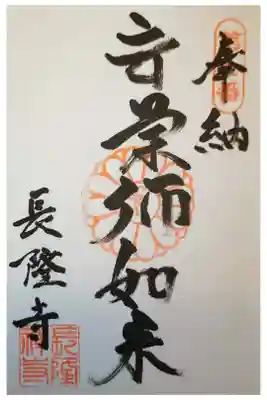 奉納
薬師如来
長隆寺